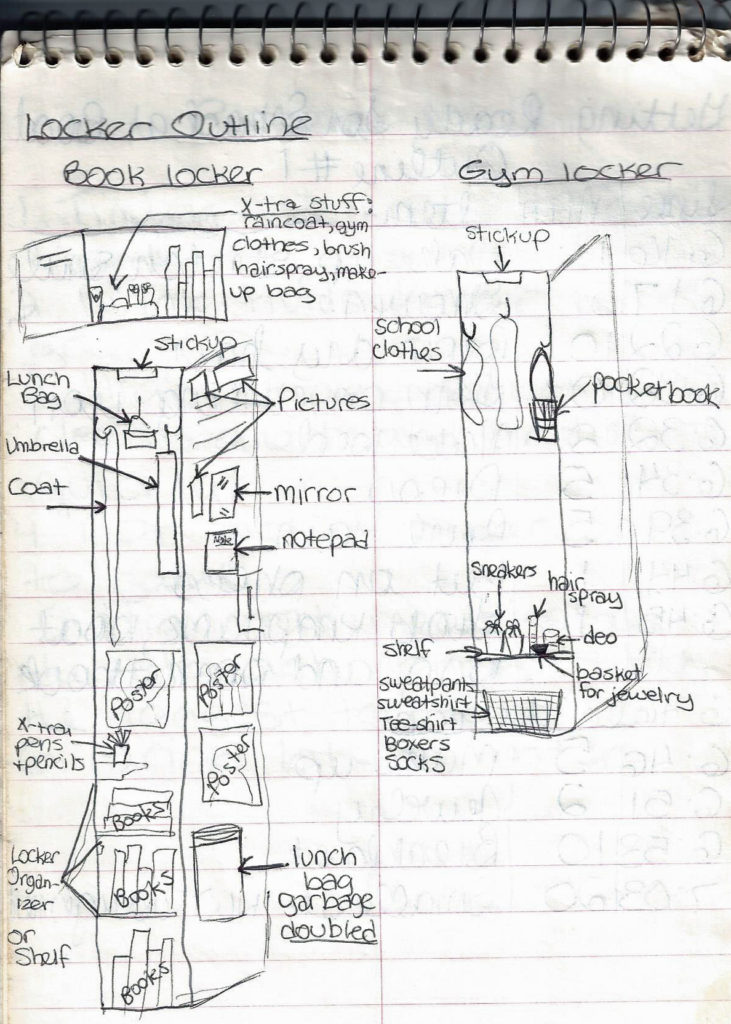 Locker Outline
Book locker
X-tra stuff:
raincoat, gym
clothes, brush
hairspray, make-
up bag
stickup
Lunch
Bag
Pictures
Umbrella
Coat
mirror
Note
notepad
Poster
Poster
X-tra
pens
+pencils
Poster
Books
Locker
Organ-
izer
Books
lunch
bag
garbage
doubled
or
Shelf
Books
Gym locker
stickup
school
clothes
pocketbook
sneakers
hair
spray
deo
shelf
basket
for jewelry
sweatpants
sweatshirt
Tee-shirt
Boxers
socks